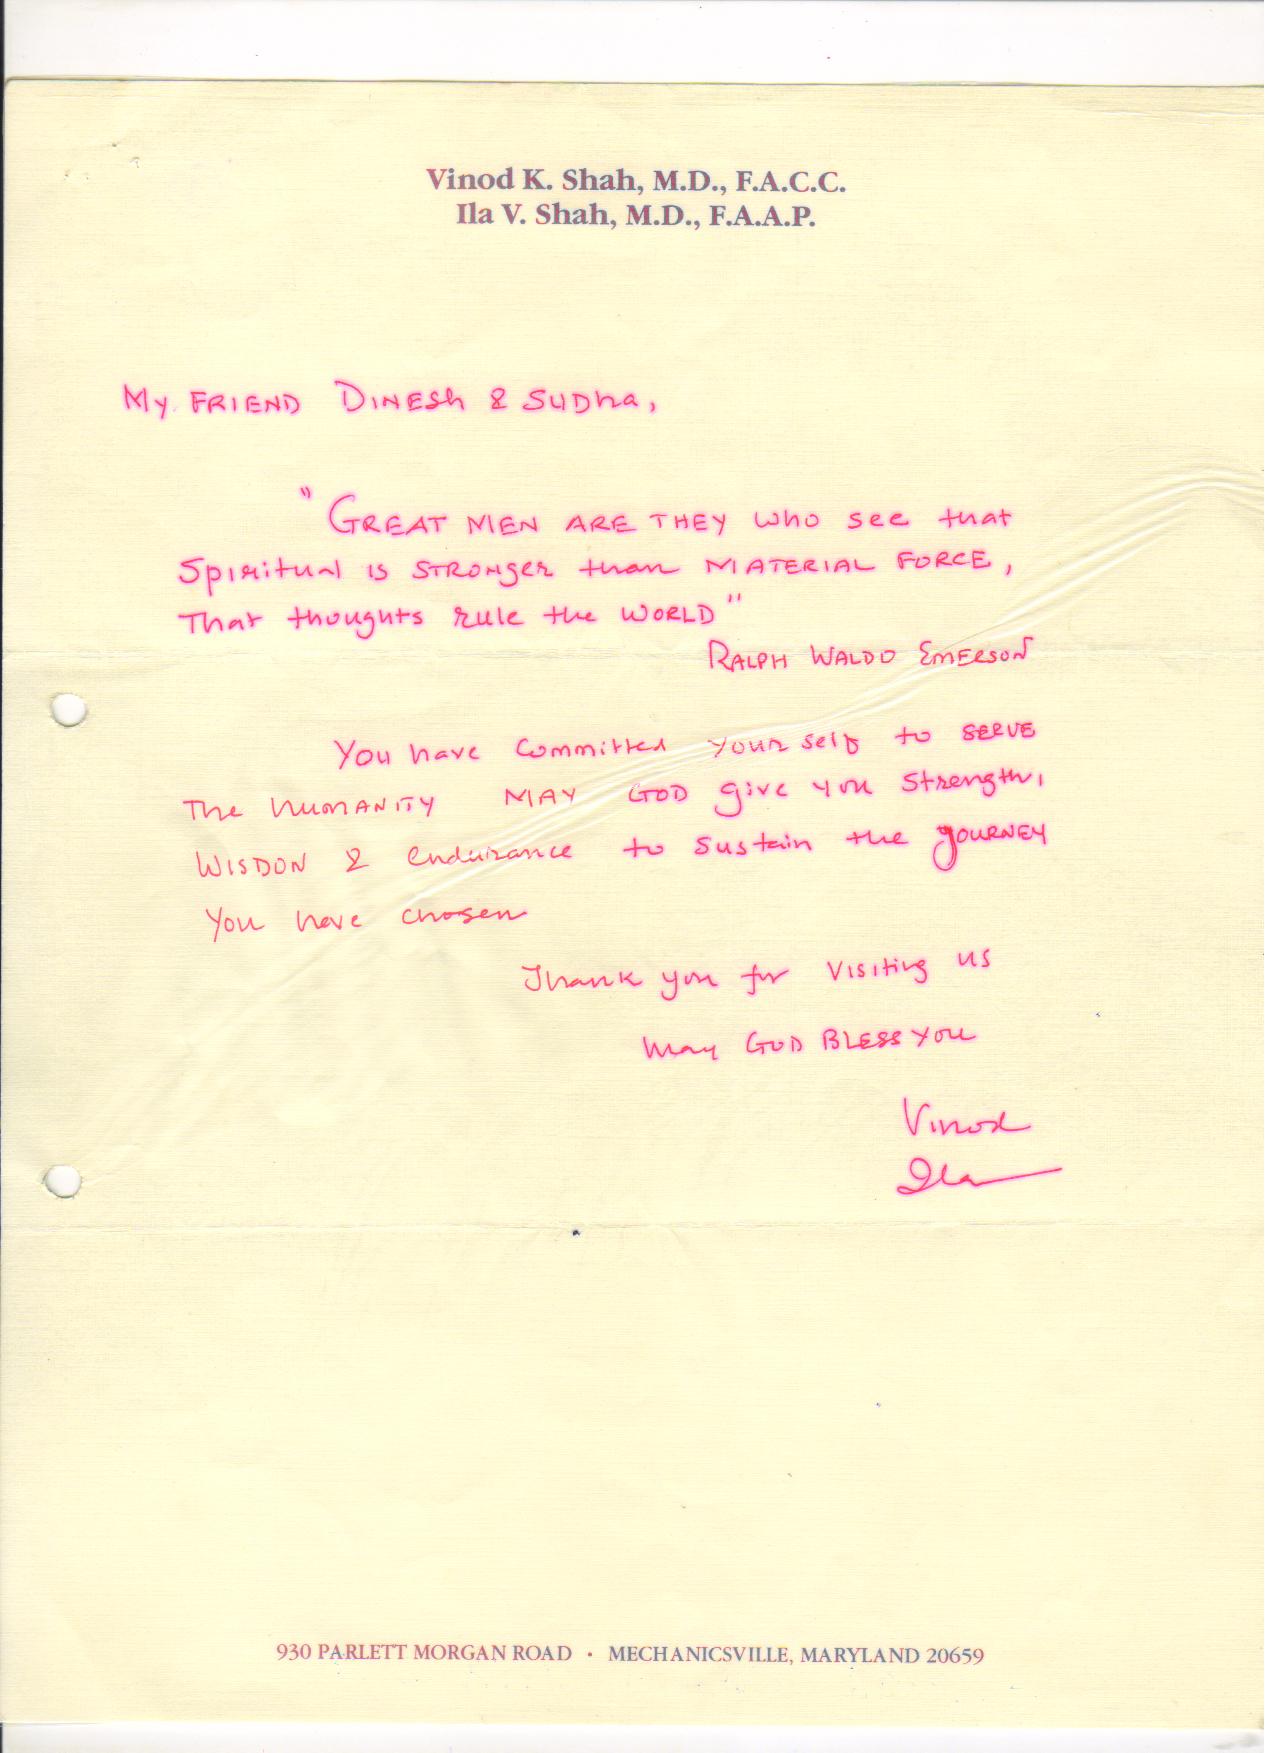 Vinod K. Shah, M.D., F.A.C.C.
Ila V. Shah, M.D., F.A.A.P.
My FRIEND DINESh & SUDha,
"GREAT MEN ARE THEY who see that
Spiritual is STRONger than MATERIAL FORCE,
That thoughts rule the WORLD"
RALPH WALDO EMERSON
You have committed your self to SERVE
The humANITY MAY GOD give you strength,
WISDON & endurance to sustain the JOURNEY
You have chosen
Thank you for visiting us
May GOD BLESS YOU
Vinod
Ila
930 PARLETT MORGAN ROAD • MECHANICSVILLE, MARYLAND 20659